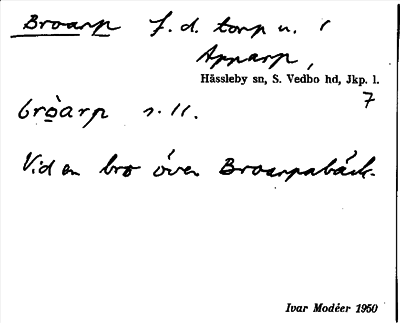 Broarp f.d. torp u. i
Apparp,
Hässleby sn, S. Vedbo hd, Jkp. l.
7
bròarp s. 11.
Vid en bro över Broarpabäck.
Ivar Modéer 1950